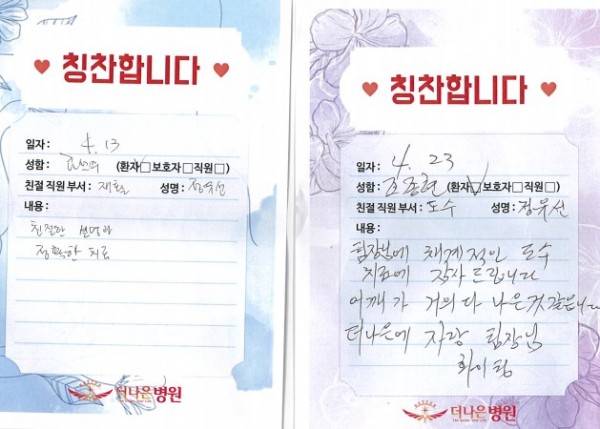 칭찬합니다
일자 : 4. 13
성함 : (환자☑보호자□직원□)
친절 직원 부서 : 재활 성명 : 정유선
내용 :
친절한 설명과
정확한 치료
더나은병원
칭찬합니다
일자 : 4. 23
성함 : (환자☑보호자□직원□)
친절 직원 부서 : 도수 성명 : 정유선
내용 :
팀장님에 체계적인 도수
치료에 감사드립니다
어깨가 거의 다 나은것 같은니다
더나은에 자랑 팀장님
화이팅
더나은병원